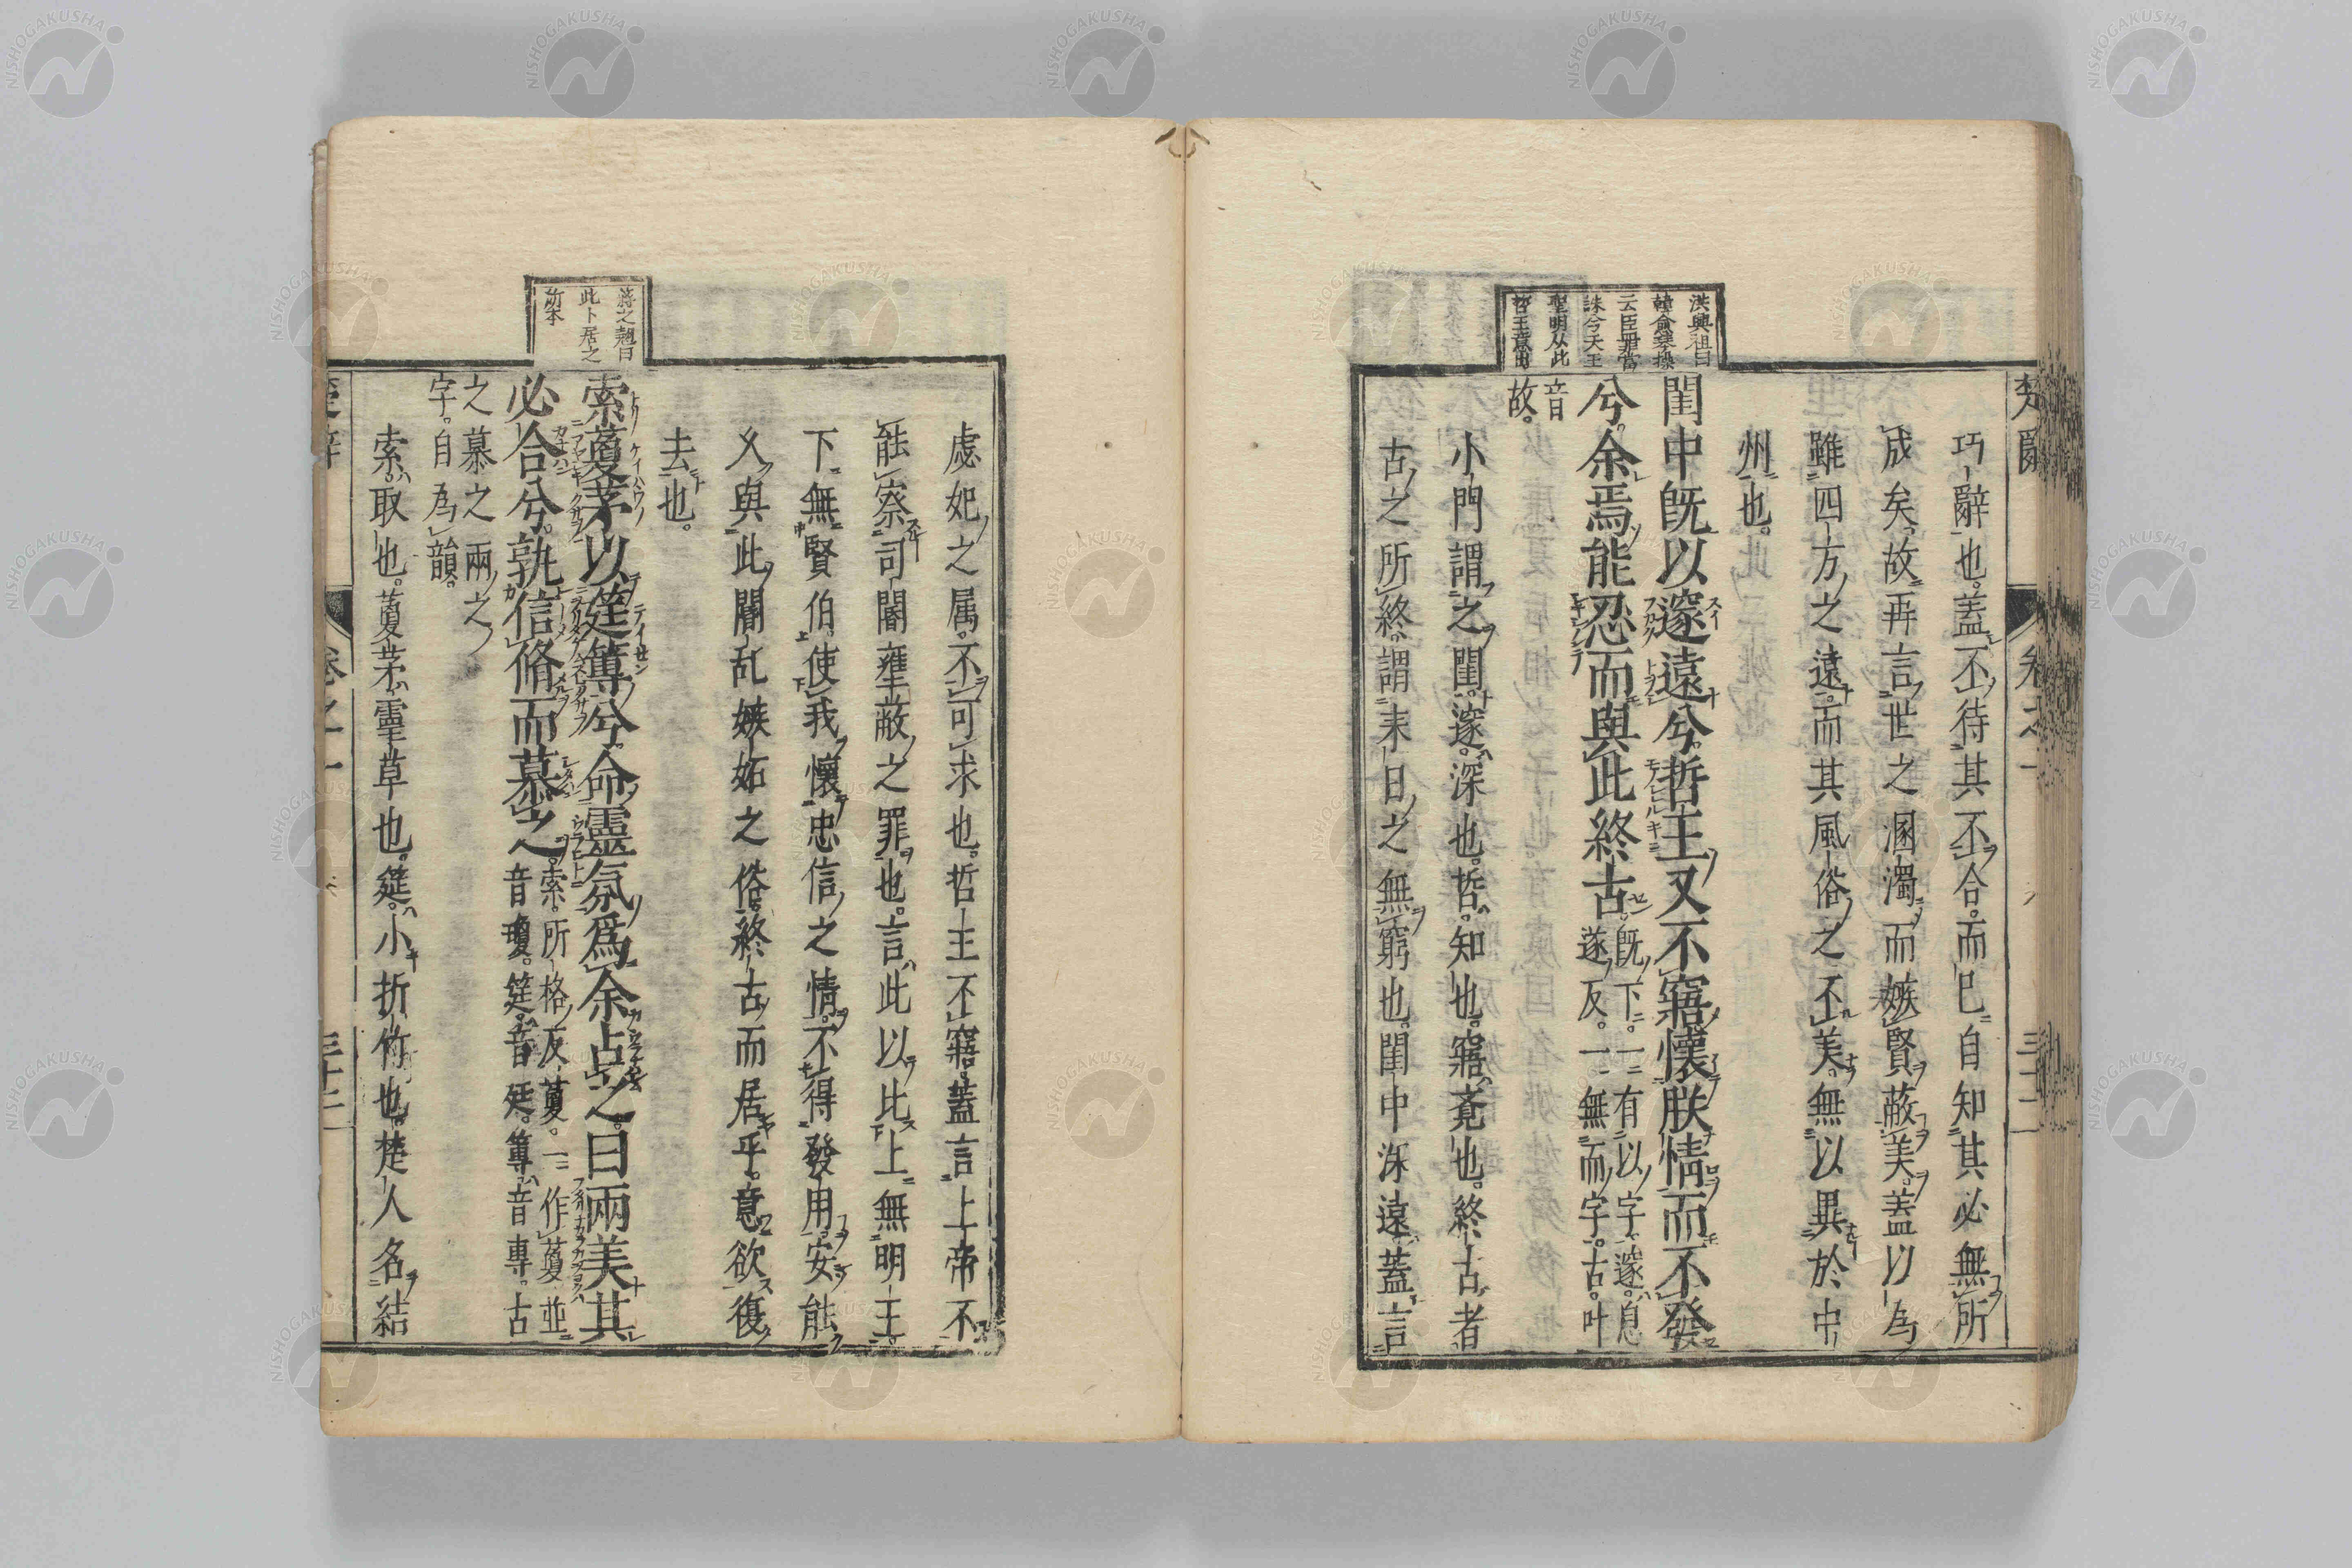 楚辭 卷之一 三十二
洪興祖曰
韓愈琴操
云臣罪當
誅兮天王
聖明从此
哲王意出
巧辭也。蓋不待其不合。而已自知其必無所
成矣。故再言世之溷濁而嫉賢蔽美。蓋以為
雖四方之遠。而其風俗之不美。無以異於中
州也。
閨中既以邃遠兮。哲王又不寤。懷朕情而不發
兮。余焉能忍而與此終古。既、下。一有以字。邃。息
遂反。一無而字。古。叶
音
故。
小門謂之閨。邃。深也。哲。知也。寤。覺也。終古者
古之所終。謂末日之無窮也。閨中深遠。蓋言
虙妃之属。不可求也。哲王不寤。蓋言上帝不
能察司閽壅蔽之罪也。言此以比上無明王。
下無賢伯。使我懷忠信之情。不得發用。安能
乆與此闇乱嫉妬之俗。終古而居乎。意欲復
去也。
蔣之翹曰
此卜居之
所本
索藑茅以筳篿兮。命靈氛為余占之。曰兩美其
必合兮。孰信脩而慕之。索。所格反。藑。一作蔓並
音瓊。筳。音廷。篿。音專。古
之慕之兩之
字。自為韻。
索。取也。藑茅。靈草也。筳。小折竹也。楚人名結
楚辭 卷之一 三十二